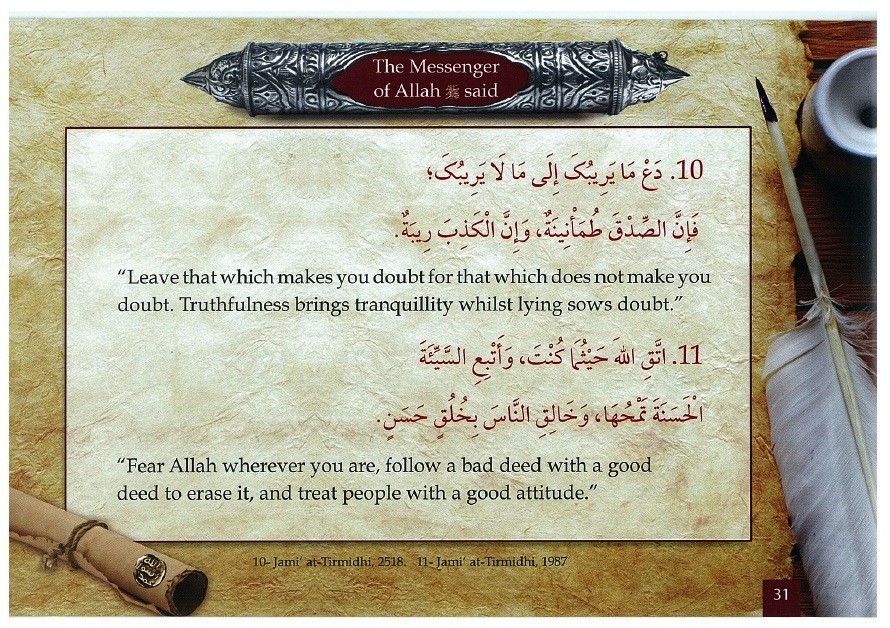 The Messenger
of Allah ﷺ said
10. دَعْ مَا يَرِيبُكَ إِلَى مَا لَا يَرِيبُكَ؛
فَإِنَّ الصِّدْقَ طُمَأْنِينَةٌ، وَإِنَّ الْكَذِبَ رِيبَةٌ.
“Leave that which makes you doubt for that which does not make you
doubt. Truthfulness brings tranquillity whilst lying sows doubt.”
11. اتَّقِ اللهَ حَيْثُمَا كُنْتَ، وَأَتْبِعِ السَّيِّئَةَ
الْحَسَنَةَ تَمْحُهَا، وَخَالِقِ النَّاسَ بِخُلُقٍ حَسَنٍ.
“Fear Allah wherever you are, follow a bad deed with a good
deed to erase it, and treat people with a good attitude.”
10- Jami‘ at-Tirmidhi, 2518. 11- Jami‘ at-Tirmidhi, 1987
31